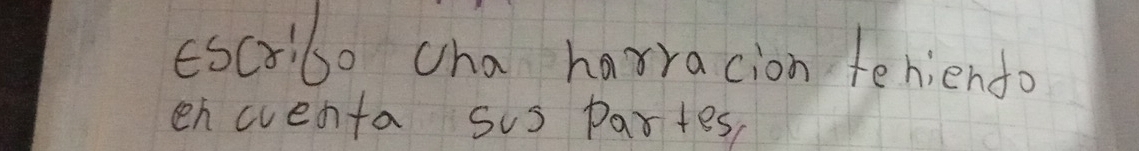 Escribo una narracion teniendo
en cuenta sus partes,